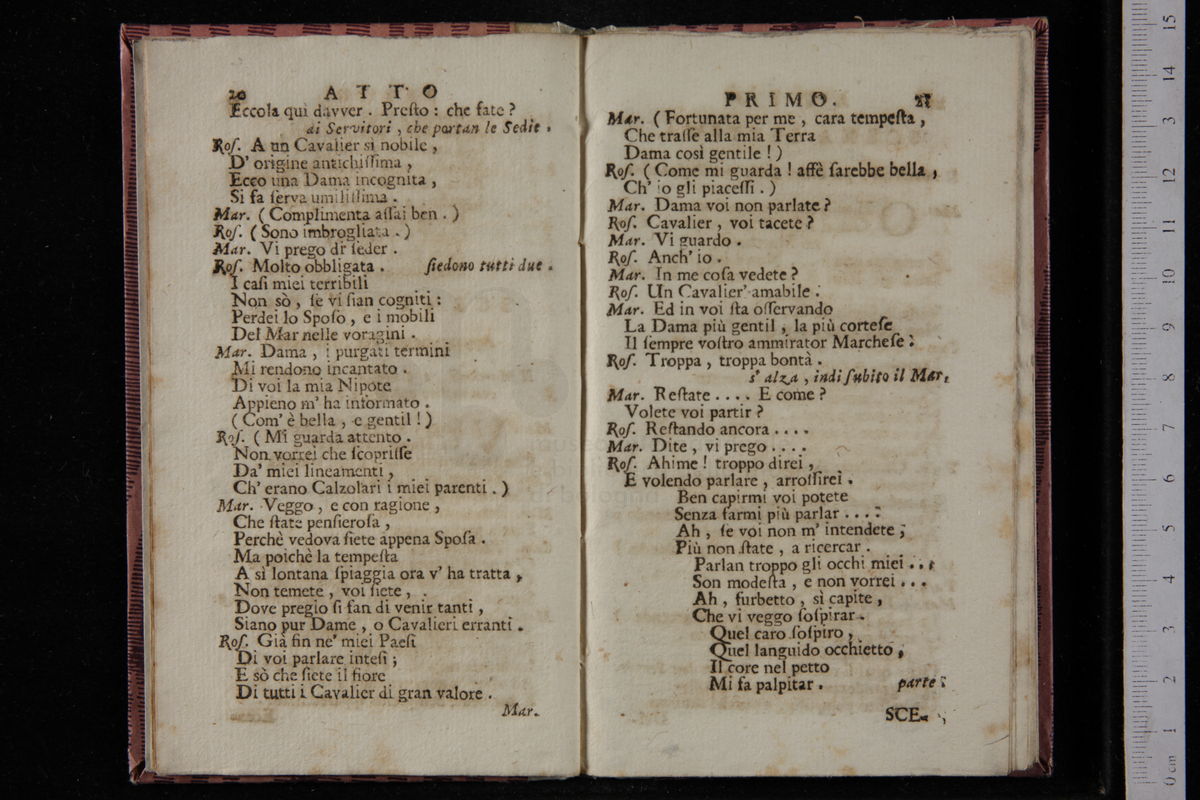 20 ATTO
Eccola quì davver . Preſto : che fate ?
ai Servitori , che portan le Sedie .
Roſ. A un Cavalier sì nobile ,
D' origine antichiſſima ,
Ecco una Dama incognita ,
Si fa ſerva umiliſſima .
Mar. ( Complimenta aſſai ben . )
Roſ. ( Sono imbrogliata . )
Mar. Vi prego di ſeder .
Roſ. Molto obbligata . ſiedono tutti due .
I caſi miei terribili
Non sò , ſe vi ſian cogniti :
Perdei lo Spoſo , e i mobili
Del Mar nelle voragini .
Mar. Dama , i purgati termini
Mi rendono incantato .
Di voi la mia Nipote
Appieno m' ha informato .
( Com' è bella , e gentil ! )
Roſ. ( Mi guarda attento .
Non vorrei che ſcopriſſe
Da' miei lineamenti ,
Ch' erano Calzolari i miei parenti . )
Mar. Veggo , e con ragione ,
Che ſtate penſieroſa ,
Perchè vedova ſiete appena Spoſa .
Ma poichè la tempeſta
A sì lontana ſpiaggia ora v' ha tratta ,
Non temete , voi ſiete ,
Dove pregio ſi fan di venir tanti ,
Siano pur Dame , o Cavalieri erranti .
Roſ. Già fin ne' miei Paeſi
Di voi parlare inteſi ;
E sò che ſiete il fiore
Di tutti i Cavalier di gran valore .
Mar.
PRIMO. 21
Mar. ( Fortunata per me , cara tempeſta ,
Che traſſe alla mia Terra
Dama così gentile ! )
Roſ. ( Come mi guarda ! affè ſarebbe bella ,
Ch' io gli piaceſſi . )
Mar. Dama voi non parlate ?
Roſ. Cavalier , voi tacete ?
Mar. Vi guardo .
Roſ. Anch' io .
Mar. In me coſa vedete ?
Roſ. Un Cavalier' amabile .
Mar. Ed in voi ſta oſſervando
La Dama più gentil , la più corteſe
Il ſempre voſtro ammirator Marcheſe .
Roſ. Troppa , troppa bontà .
s' alza , indi ſubito il Mar.
Mar. Reſtate . . . . E come ?
Volete voi partir ?
Roſ. Reſtando ancora . . . .
Mar. Dite , vi prego . . . .
Roſ. Ahime ! troppo direi ,
E volendo parlare , arroſſirei .
Ben capirmi voi potete
Senza farmi più parlar . . . .
Ah , ſe voi non m' intendete ;
Più non ſtate , a ricercar .
Parlan troppo gli occhi miei . . .
Son modeſta , e non vorrei . . .
Ah , furbetto , sì capite ,
Che vi veggo ſoſpirar .
Quel caro ſoſpiro ,
Quel languido occhietto ,
Il core nel petto
Mi fa palpitar . parte .
SCE-
15
14
13
12
11
10
9
8
7
6
5
4
3
2
1
0 cm